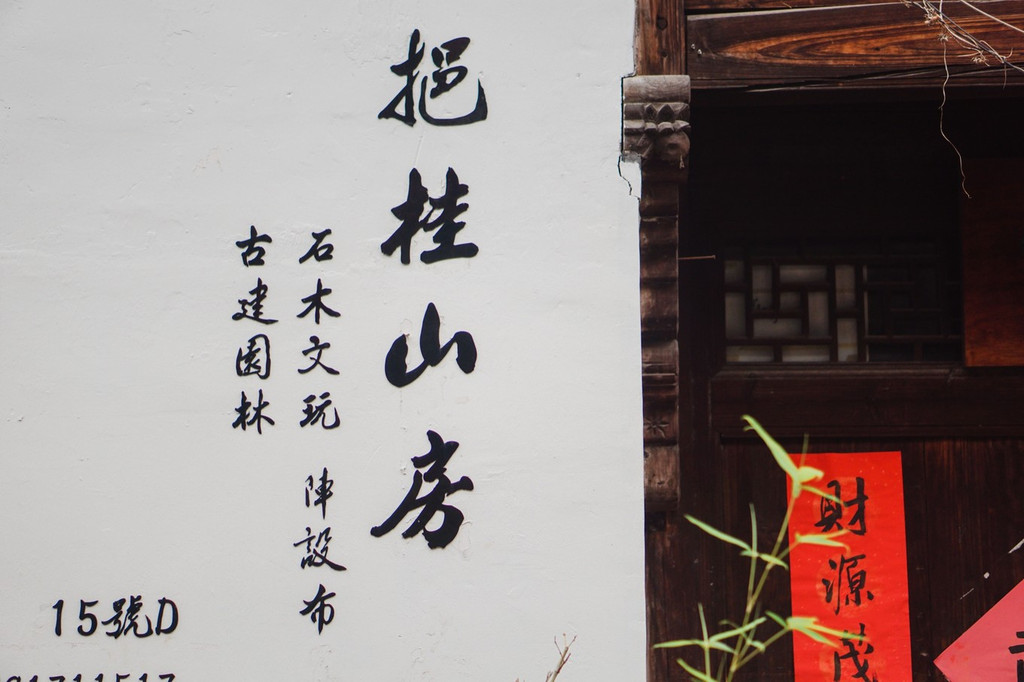 挹桂山房
石木文玩 陣設布
古建園林
15號D
財源茂